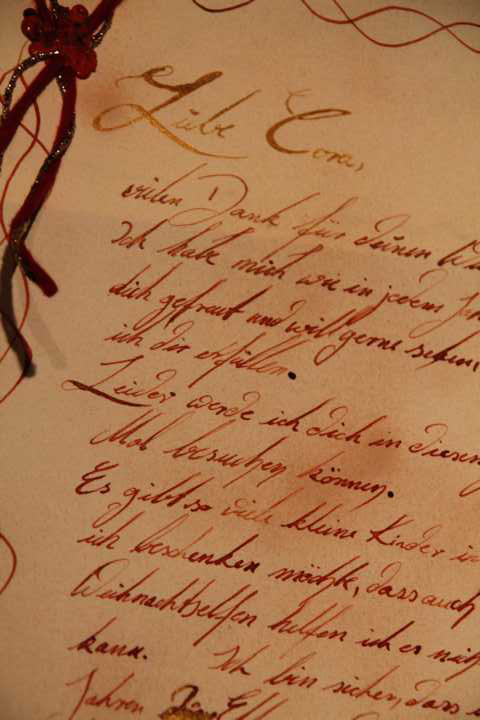 Liebe Cora,
vielen Dank für deinen
Ich habe mich wie in jedem
dich gefreut und will gerne sehen,
ich dir erfüllen.
Leider werde ich dich in diesem
Mal besuchen können.
Es gibt so viele kleine Kinder
ich beschenken möchte, dass auch
Weihnachtselfen helfen ich es
kann. Ich bin sicher, dass
Jahren